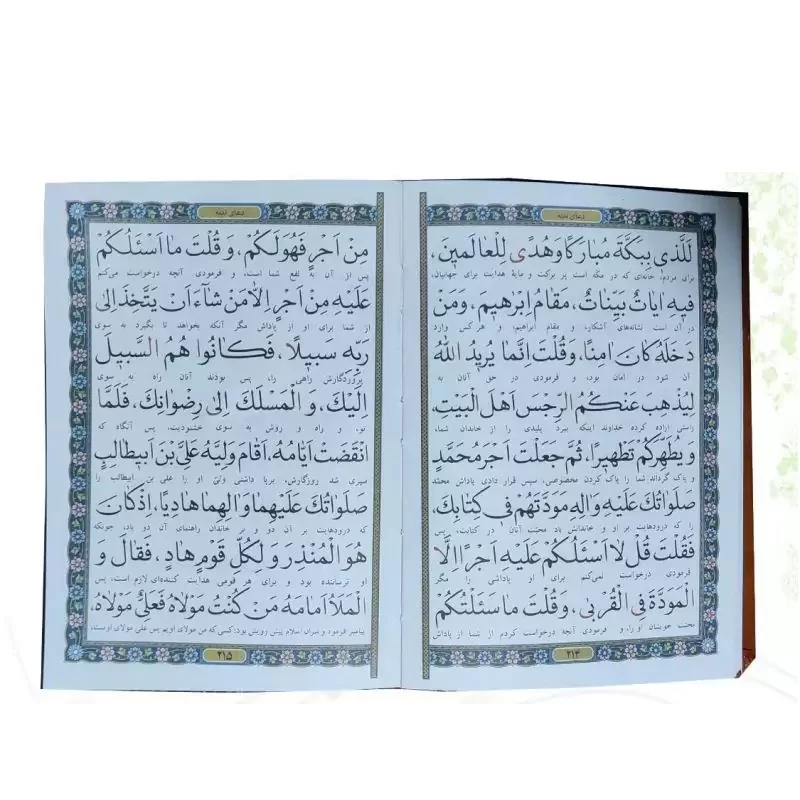 دعای ندبه
لَلَّذی بِبَکَّةَ مُبارَکًا وَ هُدًی لِلْعالَمینَ،
برای مردم، خانه‌ای که در مکّه است پر برکت و مایهٔ هدایت برای جهانیان،
فیهِ ایاتٌ بَیِّناتٌ، مَقامُ اِبْرهیمَ، وَمَنْ
در آن است نشانه‌های آشکار، و مقام ابراهیم، و هر کس وارد
دَخَلَهُ کانَ امِنًا، وَ قُلْتَ اِنَّما یُریدُ اللّٰهُ
آن شود در امان بود، و فرمودی در حق آنان به
لِیُذْهِبَ عَنْکُمُ الرِّجْسَ اَهْلَ الْبَیْتِ،
راستی اراده کرده خداوند اینکه ببرد پلیدی را از خاندان شما،
وَ یُطَهِّرَکُمْ تَطْهیرًا، ثُمَّ جَعَلْتَ اَجْرَ مُحَمَّدٍ
و پاک گرداند شما را پاک کردن مخصوصی، سپس قرار دادی پاداش محمّد
صَلَواتُکَ عَلَیْهِ وَ الِهِ مَوَدَّتَهُمْ فی کِتابِکَ،
را که درودهایت بر او و خاندانش باد محبّت آنان در کتابت، پس
فَقُلْتَ قُلْ لا اَسْئَلُکُمْ عَلَیْهِ اَجْرًا اِلَّا
فرمودی درخواست نمی‌کنم برای او پاداشی را مگر
الْمَوَدَّةَ فِی الْقُرْبی، وَ قُلْتَ ما سَئَلْتُکُمْ
محبّت خویشان او را، و فرمودی آنچه درخواست کردم از شما از پاداش
۲۱۴
دعای ندبه
مِنْ اَجْرٍ فَهُوَ لَکُمْ، وَ قُلْتَ ما اَسْئَلُکُمْ
پس از آن به نفع شما است، و فرمودی آنچه درخواست می‌کنم
عَلَیْهِ مِنْ اَجْرٍ اِلّا مَنْ شآءَ اَنْ یَتَّخِذَ اِلی
از شما برای او از پاداش مگر آنکه بخواهد تا بگیرد به سوی
رَبِّهِ سَبیلًا، فَکانُوا هُمُ السَّبیلَ
پروردگارش راهی را، پس بودند آنان راه به سوی
اِلَیْکَ، وَ الْمَسْلَکَ اِلی رِضْوانِکَ، فَلَمَّا
تو، و راه و روش به سوی خشنودیت، پس آنگاه که
انْقَضَتْ اَیّامُهُ، اَقامَ وَلِیَّهُ عَلِیَّ بْنَ اَبیطالِبٍ
سپری شد روزگارش، برپا داشتی ولیّ او را علی بن ابیطالب را
صَلَواتُکَ عَلَیْهِما وَ الِهِما هادِیًا، اِذْ کانَ
که درودهایت بر آن دو و بر خاندان راهنمای آن دو باد، چونکه
هُوَ الْمُنْذِرَ وَ لِکُلِّ قَوْمٍ هادٍ، فَقالَ وَ
او ترساننده بود و برای هر قومی هدایت کننده‌ای لازم است، پس
الْمَلَأُ اَمامَهُ مَنْ کُنْتُ مَوْلاهُ فَعَلِیٌّ مَوْلاهُ،
پیامبر فرمود و سران اسلام پیش رویش بود: کسی که من مولای اویم پس علی مولای اوست،
۲۱۵